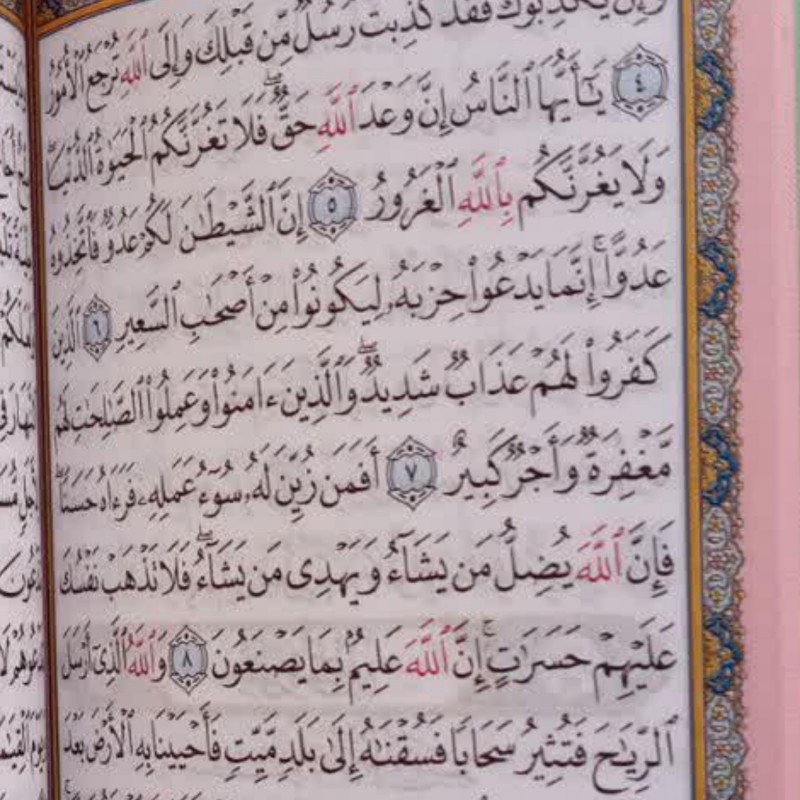 وَإِن يُكَذِّبُوكَ فَقَدْ كُذِّبَتْ رُسُلٌ مِّن قَبْلِكَ وَإِلَى ٱللَّهِ تُرْجَعُ ٱلْأُمُورُ
٤ يَـٰٓأَيُّهَا ٱلنَّاسُ إِنَّ وَعْدَ ٱللَّهِ حَقٌّۖ فَلَا تَغُرَّنَّكُمُ ٱلْحَيَوٰةُ ٱلدُّنْيَاۖ
وَلَا يَغُرَّنَّكُم بِٱللَّهِ ٱلْغَرُورُ ٥ إِنَّ ٱلشَّيْطَـٰنَ لَكُمْ عَدُوٌّ فَٱتَّخِذُوهُ
عَدُوًّاۚ إِنَّمَا يَدْعُوا۟ حِزْبَهُۥ لِيَكُونُوا۟ مِنْ أَصْحَـٰبِ ٱلسَّعِيرِ ٦ ٱلَّذِينَ
كَفَرُوا۟ لَهُمْ عَذَابٌ شَدِيدٌۖ وَٱلَّذِينَ ءَامَنُوا۟ وَعَمِلُوا۟ ٱلصَّـٰلِحَـٰتِ لَهُم
مَّغْفِرَةٌ وَأَجْرٌ كَبِيرٌ ٧ أَفَمَن زُيِّنَ لَهُۥ سُوٓءُ عَمَلِهِۦ فَرَءَاهُ حَسَنًاۖ
فَإِنَّ ٱللَّهَ يُضِلُّ مَن يَشَآءُ وَيَهْدِى مَن يَشَآءُۖ فَلَا تَذْهَبْ نَفْسُكَ
عَلَيْهِمْ حَسَرَٰتٍۚ إِنَّ ٱللَّهَ عَلِيمٌۢ بِمَا يَصْنَعُونَ ٨ وَٱللَّهُ ٱلَّذِىٓ أَرْسَلَ
ٱلرِّيَـٰحَ فَتُثِيرُ سَحَابًا فَسُقْنَـٰهُ إِلَىٰ بَلَدٍ مَّيِّتٍ فَأَحْيَيْنَا بِهِ ٱلْأَرْضَ بَعْدَ